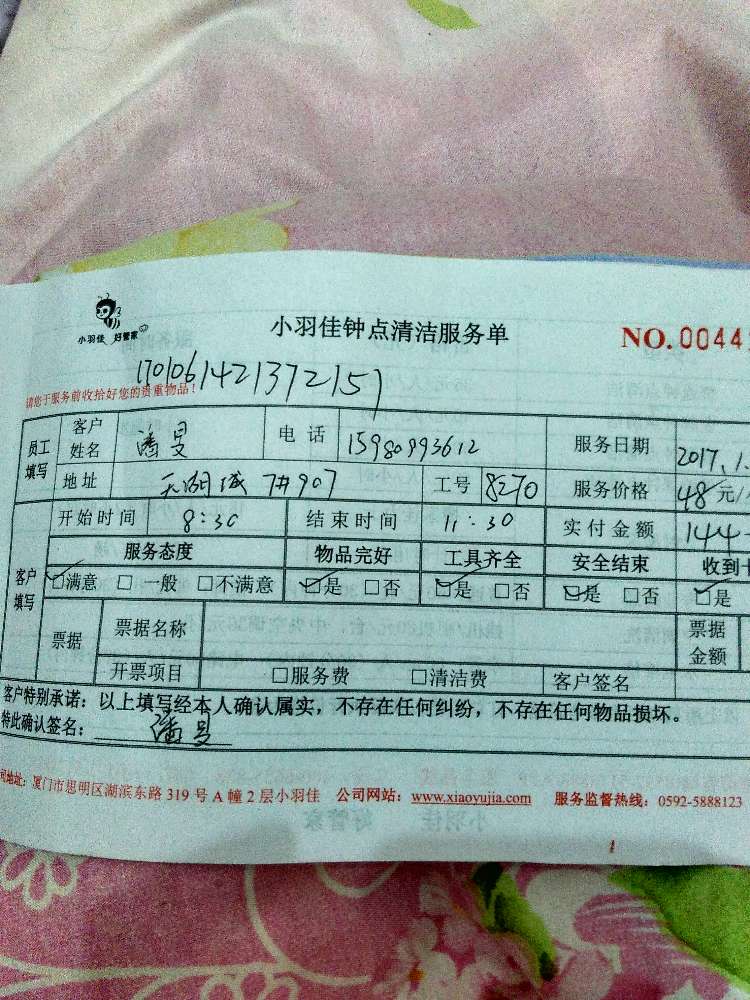 小羽佳 好管家
小羽佳钟点清洁服务单
NO.0044
1701061421372157
请您于服务前收拾好您的贵重物品!
员工填写 客户姓名 潘旻 电话 15980993612 服务日期 2017.1.
地址 天湖城 7#907 工号 8270 服务价格 48元/
客户填写 开始时间 8:30 结束时间 11:30 实付金额 144
服务态度 物品完好 工具齐全 安全结束 收到
☑满意 □一般 □不满意 ☑是 □否 ☑是 □否 ☑是 □否 ☑是
票据 票据名称 票据金额
开票项目 □服务费 □清洁费 客户签名
客户特别承诺:以上填写经本人确认属实,不存在任何纠纷,不存在任何物品损坏。
特此确认签名: 潘旻
司地址:厦门市思明区湖滨东路 319 号 A 幢 2 层小羽佳 公司网站:www.xiaoyujia.com 服务监督热线:0592-5888123